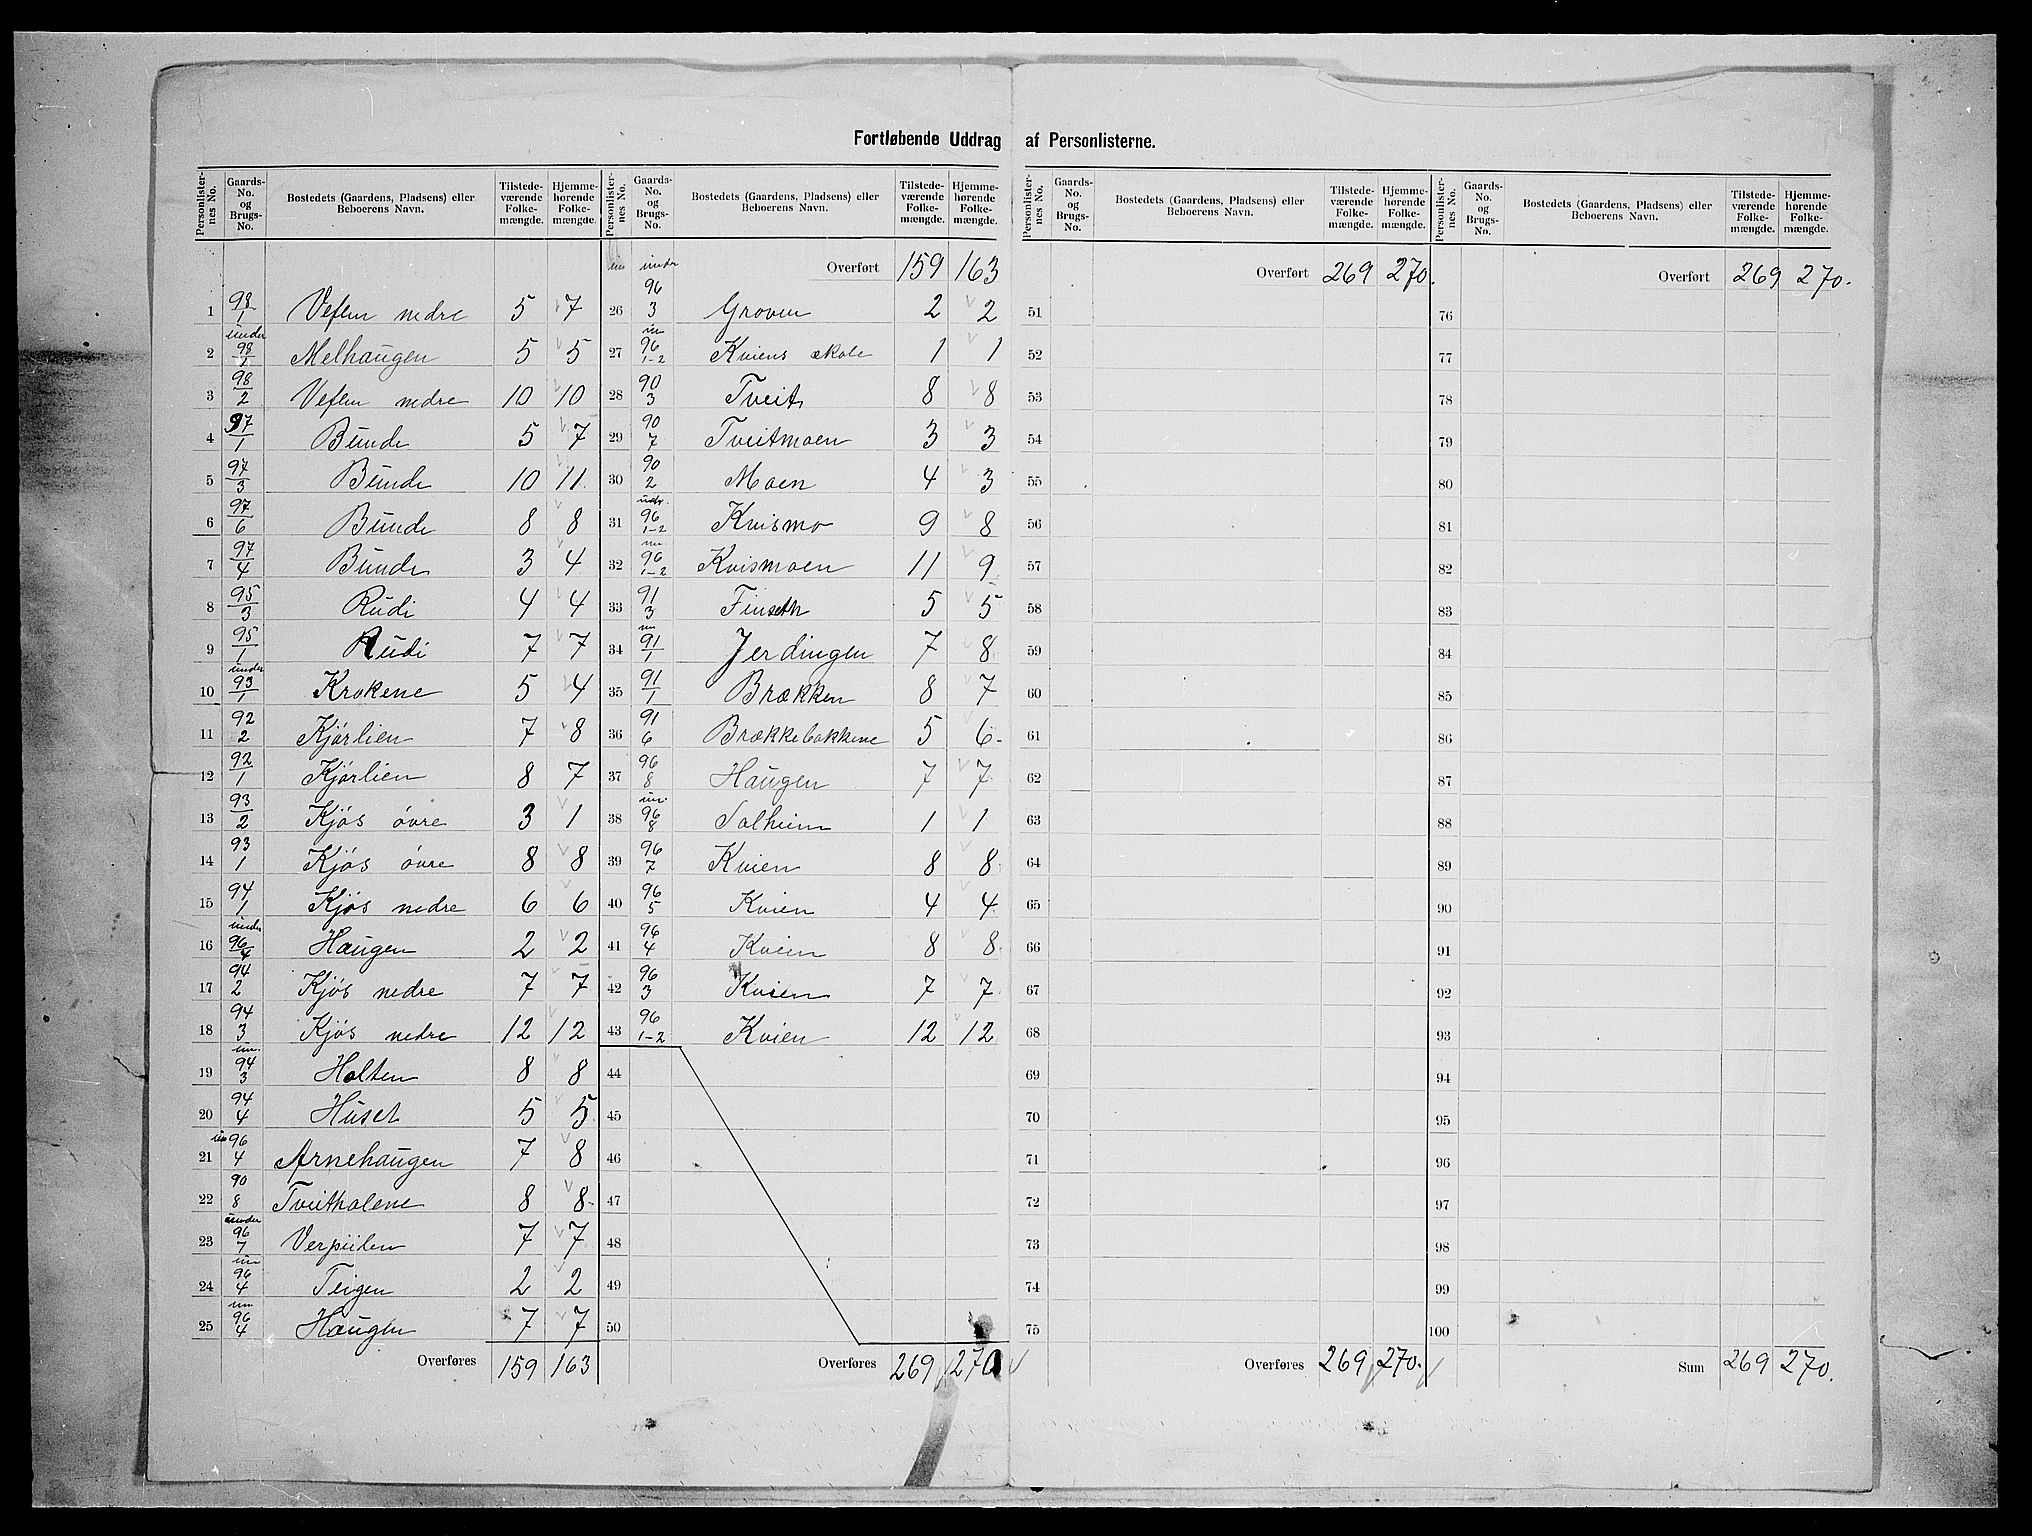 Fortløbende Uddrag af Personlisterne.
Personlisternes No. | Gaards-No. og Brugs-No. | Bostedets (Gaardens, Pladsens) eller Beboerens Navn. | Tilstedeværende Folkemængde. | Hjemmehørende Folkemængde.
1 98/1 Veflen nedre 5 7
2 under 98/2 Melhaugen 5 5
3 98/2 Veflen nedre 10 10
4 97/1 Bunde 5 7
5 97/3 Bunde 10 11
6 97/6 Bunde 8 8
7 97/4 Bunde 3 4
8 95/3 Rudi 4 4
9 95/1 Rudi 7 7
10 under 93/1 Krokene 5 4
11 92/2 Kjórlien 7 8
12 92/1 Kjórlien 8 7
13 93/2 Kjós óvre 3 1
14 93/1 Kjós óvre 8 8
15 94/1 Kjós nedre 6 6
16 under 96/4 Haugen 2 2
17 94/2 Kjós nedre 7 7
18 94/3 Kjós nedre 12 12
19 un. 94/3 Holten 8 8
20 94/4 Huset 5 5
21 un 96/4 Arnehaugen 7 8
22 90/8 Tveitholene 8 8
23 under 96/7 Verpiilen 7 7
24 un 96/4 Teigen 2 2
25 un 96/4 Haugen 7 7
Overføres 159 163
Personlisternes No. | Gaards-No. og Brugs-No. | Bostedets (Gaardens, Pladsens) eller Beboerens Navn. | Tilstedeværende Folkemængde. | Hjemmehørende Folkemængde.
Overført 159 163
26 under 96/3 Groven 2 2
27 un 96/1-2 Kviens skole 1 1
28 90/3 Tveit 8 8
29 90/7 Tveitmoen 3 3
30 90/2 Moen 4 3
31 undr. 96/1-2 Kvismo 9 8
32 un. 96/1-2 Kvismoen 11 9
33 91/3 Finseth 5 5
34 un 91/1 Jerdingen 7 8
35 91/1 Brækken 8 7
36 91/6 Brækkebakkene 5 6
37 96/8 Haugen 7 7
38 un. 96/8 Solheim 1 1
39 96/7 Kvien 8 8
40 96/5 Kvien 4 4
41 96/4 Kvien 8 8
42 96/3 Kvien 7 7
43 96/1-2 Kvien 12 12
44
45
46
47
48
49
50
Overføres 269 270
Personlisternes No. | Gaards-No. og Brugs-No. | Bostedets (Gaardens, Pladsens) eller Beboerens Navn. | Tilstedeværende Folkemængde. | Hjemmehørende Folkemængde.
Overført 269 270.
51
52
53
54
55
56
57
58
59
60
61
62
63
64
65
66
67
68
69
70
71
72
73
74
75
Overføres 269 270.
Personlisternes No. | Gaards-No. og Brugs-No. | Bostedets (Gaardens, Pladsens) eller Beboerens Navn. | Tilstedeværende Folkemængde. | Hjemmehørende Folkemængde.
Overført 269 270.
76
77
78
79
80
81
82
83
84
85
86
87
88
89
90
91
92
93
94
95
96
97
98
99
100
Sum 269 270.